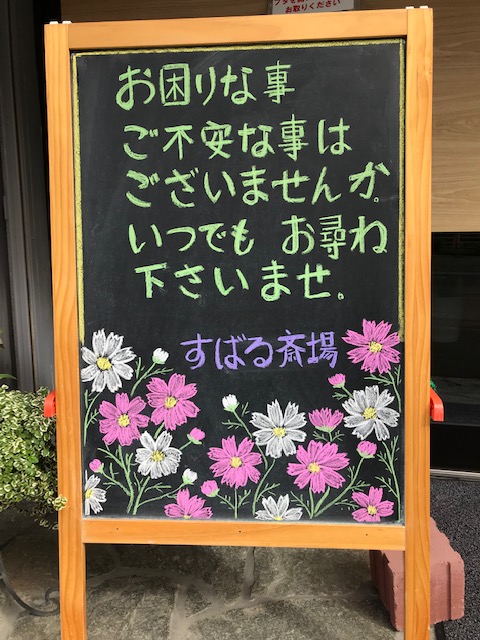 お取りください
お困りな事
ご不安な事は
ございませんか。
いつでも お尋ね
下さいませ。
すばる斎場